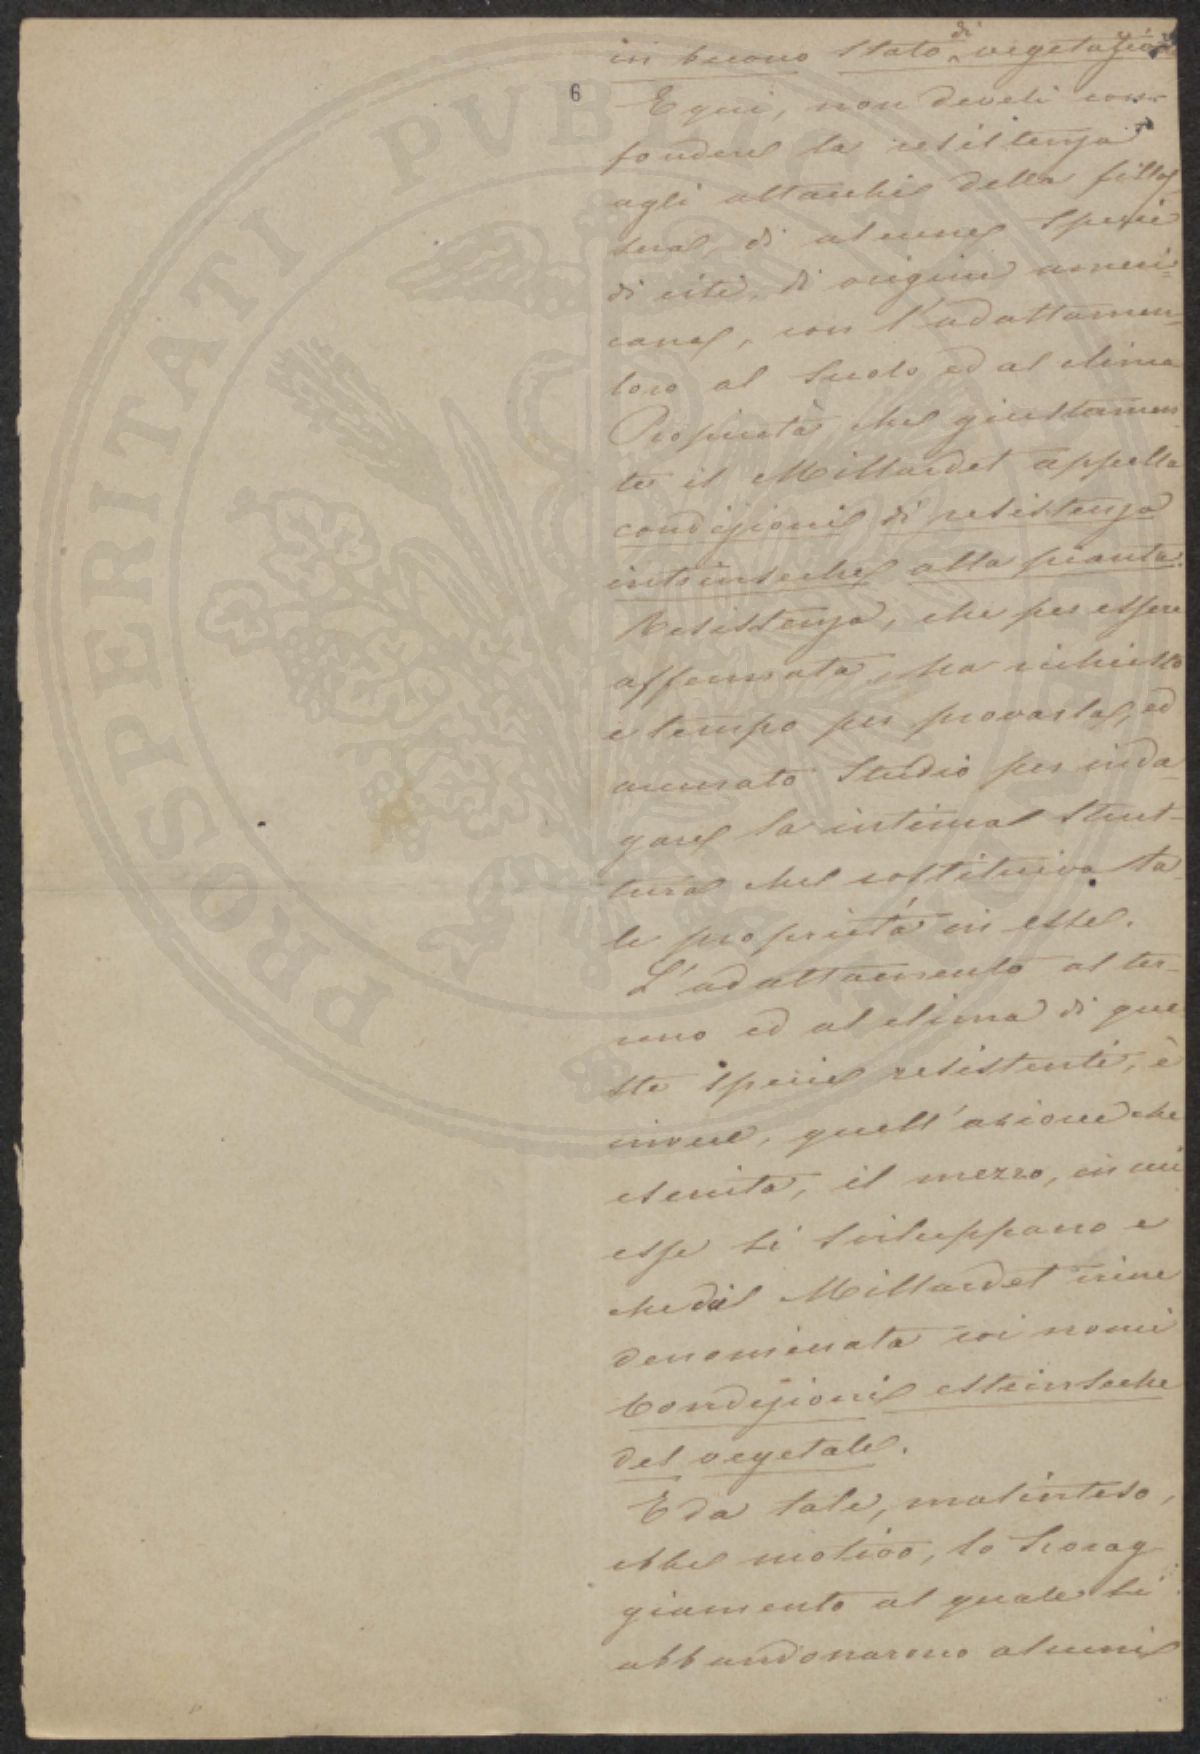 in buono stato di vegetazione
6
E qui, non devesi con-
fondere la resistenza
agli attacchi della fillos-
sera, di alcune specie
di viti, di origine ameri-
cana, con l'adattamen-
loro al suolo ed al clima
Proprietà che giustamen-
te il Millardet appella
condizioni di resistenza
intrinseche alla pianta.
Resistenza, che per essere
affermata, ha richiesto
e tempo per provarla, ed
accurato studio per inda-
gare la intima strut-
tura che costituiva ta-
le proprietà in esse.
L'adattamento al ter-
reno ed al clima di que
ste specie resistenti, è
invece, quell'azione che
esercita, il mezzo, in cui
esse si sviluppano e
che dal Millardet viene
denominata coi nomi
Condizioni estrinseche
del vegetale.
E da tale, malinteso,
ebbe motivo, lo scorag-
giamento al quale si
abbandonarono alcuni
PROSPERITATI PVBLICAE